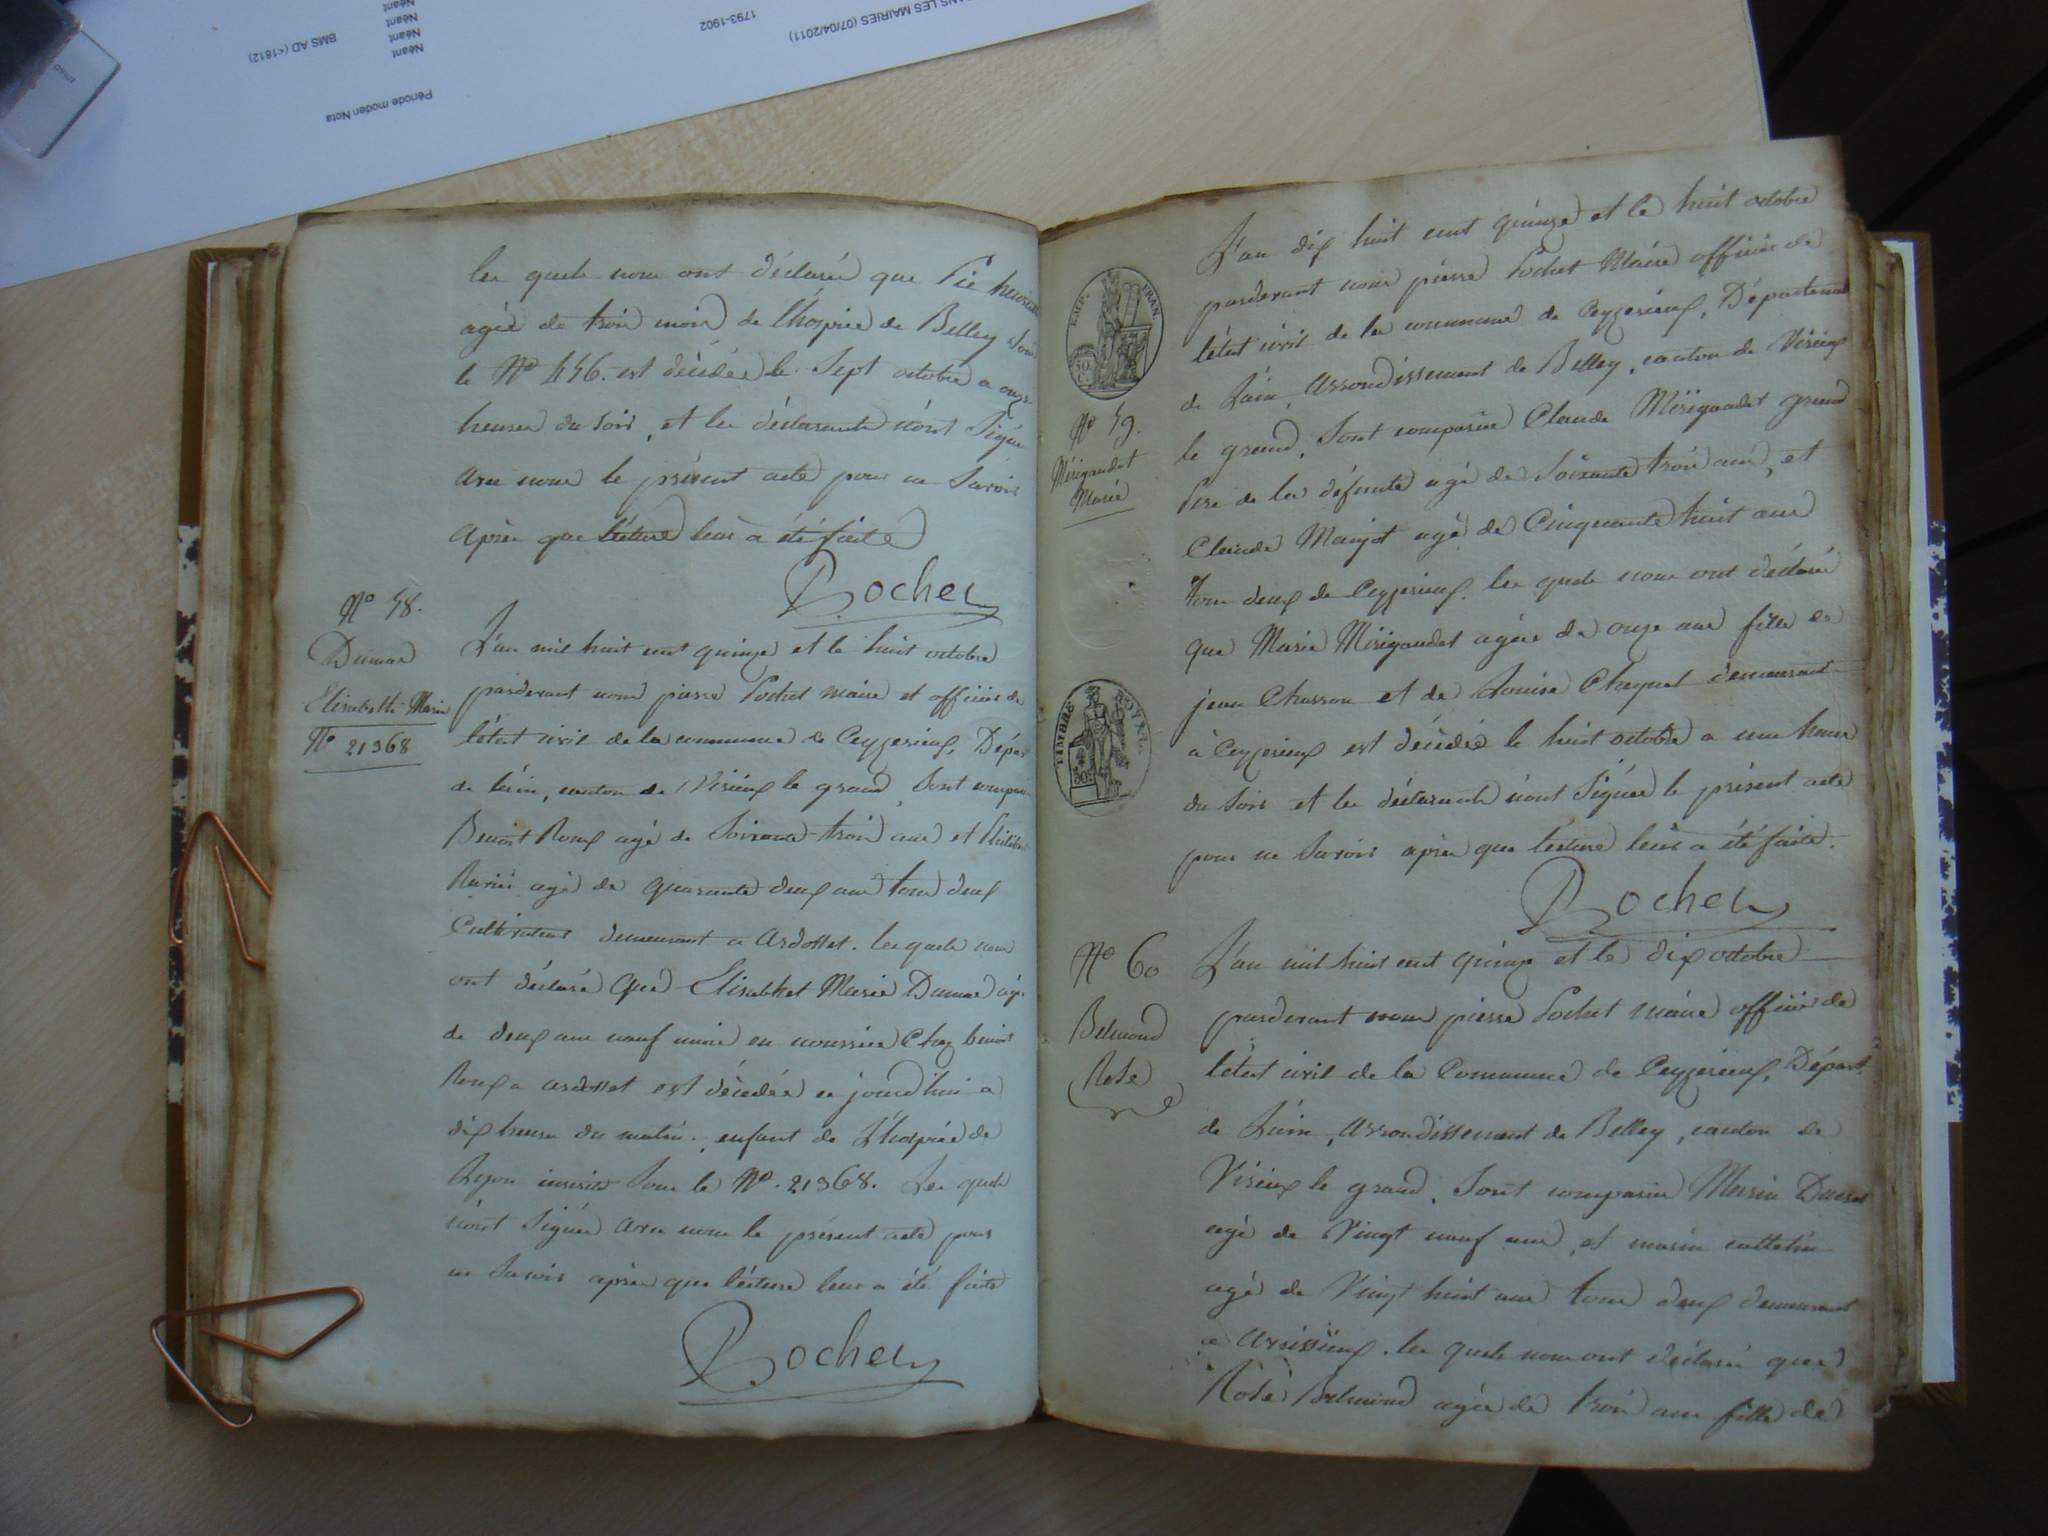 DANS LES MAIRIES (07/04/2011)
1793-1902
BMS AD (<1812)
Néant
Néant
Néant
Néant
Période moden Nota
les quels nous ont déclaré que Pie
agée de trois mois de l'hospice de Belley sous
le No 456. est décédée le Sept octobre a onze
heures du soir, et les déclarants n'ont Signé
avec nous le présent acte pour ne Savoir
Après que lecture leur a été faite
Pochet
No 58.
Dumas
Elisabeth Marie
No 21368
L'an mil huit cent quinze et le huit octobre
pardevant nous pierre Pochet maire et officier de
l'état civil de la commune de Ceyzerieux, Dépar
de l'ain, canton de Virieux le grand, Sont comparu
Benoit Roux agé de Soixante trois ans et
agé de quarante deux ans tous deux
Cultivateurs demeurant a Ardosset. les quels nous
ont déclaré que Elisabhet Marie Dumas agée
de deux ans neuf mois en nourrice Chez benoit
Roux a ardosset est décédée ce jourd'hui a
dix heures du matin, enfant de L'hospice de
Lyon inscrite Sous le No. 21368. Les quels
n'ont Signés avec nous le présent acte pour
ne Savoir après que lecture leur a été faite
Pochet
EMP. FRAN.
No 59.
Mérigaudet
Marie
TIMBRE ROYAL
L'an dix huit cent quinze et le huit octobre
pardevant nous pierre Pochet Maire officier de
l'état civil de la commune de Ceyzerieux, Département
de L'ain, Arrondissement de Belley, canton de Virieux
le grand, Sont comparus Claude Mérigaudet grand
Pere de la défunte agé de Soixante trois ans, et
Claude Manjot agé de Cinquante huit ans
tous deux de Ceyzerieux. les quels nous ont déclaré
que Marie Mérigaudet agée de onze ans fille de
jean Chasson et de Louise demeurant
à Ceyzerieux est décédée le huit octobre a une heure
du Soir et les déclarants n'ont Signés le présent acte
pour ne Savoir après que lecture leur a été faite.
Pochet
No 60
Belmond
Rose
L'an mil huit cent quinze et le dix octobre
pardevant nous pierre Pochet maire officier de
l'état civil de la Commune de Ceyzerieux, Départ.
de L'ain, Arrondissement de Belley, canton de
Virieux le grand, Sont comparus Marin
agé de Vingt neuf ans, et marin
agé de Vingt huit ans tous deux demeurant
a Avrissieux. les quels nous ont déclaré que
Rose Belmond agée de trois ans fille de